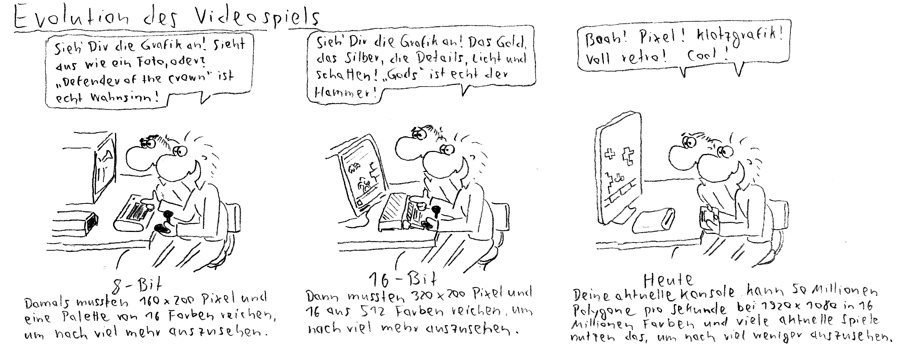 Evolution des Videospiels
Sieh' Dir die Grafik an! Sieht
aus wie ein Foto, oder?
„Defender of the Crown“ ist
echt Wahnsinn!
Sieh' Dir die Grafik an! Das Gold,
das Silber, die Details, Licht und
Schatten! „Gods“ ist echt der
Hammer!
Boah! Pixel! Klotzgrafik!
Voll retro! Cool!
8-Bit
Damals mussten 160x200 Pixel und
eine Palette von 16 Farben reichen,
um nach viel mehr auszusehen.
16-Bit
Dann mussten 320x200 Pixel und
16 aus 512 Farben reichen, um
nach viel mehr auszusehen.
Heute
Deine aktuelle Konsole kann 50 Millionen
Polygone pro Sekunde bei 1920x1080 in 16
Millionen Farben und viele aktuelle Spiele
nutzen das, um nach viel weniger auszusehen.